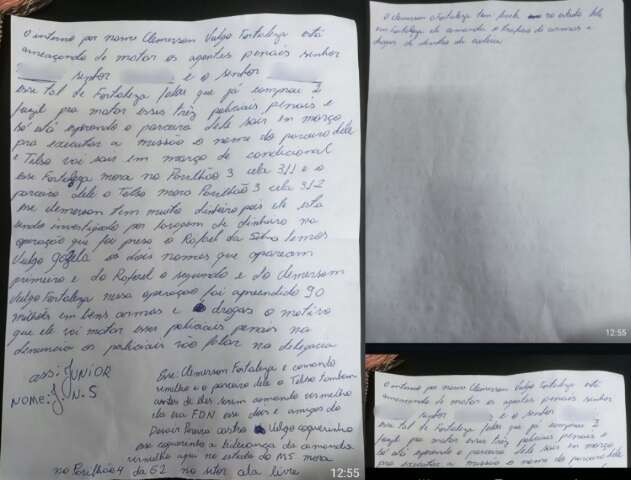 O interno por nome Clemerson Vulgo Fortaleza está
ameaçando de matar os agentes penais senhor
senhor e o senhor
esse tal de Fortaleza falou que já comprou 2
fuzil pra matar esses três policiais penais e
só atá esperando o parceiro dele sair em março
pra executar a missão o nome do parceiro dele
e Telso vai sair em março de condicional
esse Fortaleza mora no Pavilhão 3 cela 311 e o
parceiro dele o Telso mora Pavilhão 3 cela 312
esse clemerson tem muito dinheiro pois ele esta
sendo investigado por lavagem de dinheiro na
operação que foi preso o Rafael da Silva lemos
Vulgo gazela os dois nomes que aparecem
primeiro e do Rafael o segundo e do Clemerson
Vulgo Fortaleza nessa operação foi apreendido 90
milhoes em bens armas e drogas o motivo
que ele vai matar esses policiais penais na
denuncia os policiais vão falar na delegacia
ass: JUNIOR
NOME: J. N. S
Esse Clemerson Fortaleza e comando
vermelho e o parceiro dele o Telso tambem
antes de eles serem comando vermelho
ela era FDN esse dois e amigos do
Vulgo coqueirinho
esse coqueirinho a liderança do comando
vermelho aqui no estado do MS mora
no Pavilhão 4 da G2 no setor ala livre
12:55
O clemerson o Fortaleza tem no estado dele
em Fortaleza ele comanda o trafico de armas e
drogas de dentro da cadeia
12:55
O interno por nome Clemerson Vulgo Fortaleza está
ameaçando de matar os agentes penais senhor
senhor e o senhor
esse tal de Fortaleza falou que já comprou 2
fuzil pra matar esses três policiais penais e
só atá esperando o parceiro dele sair em março
pra executar a missão o nome do parceiro dele
12:55